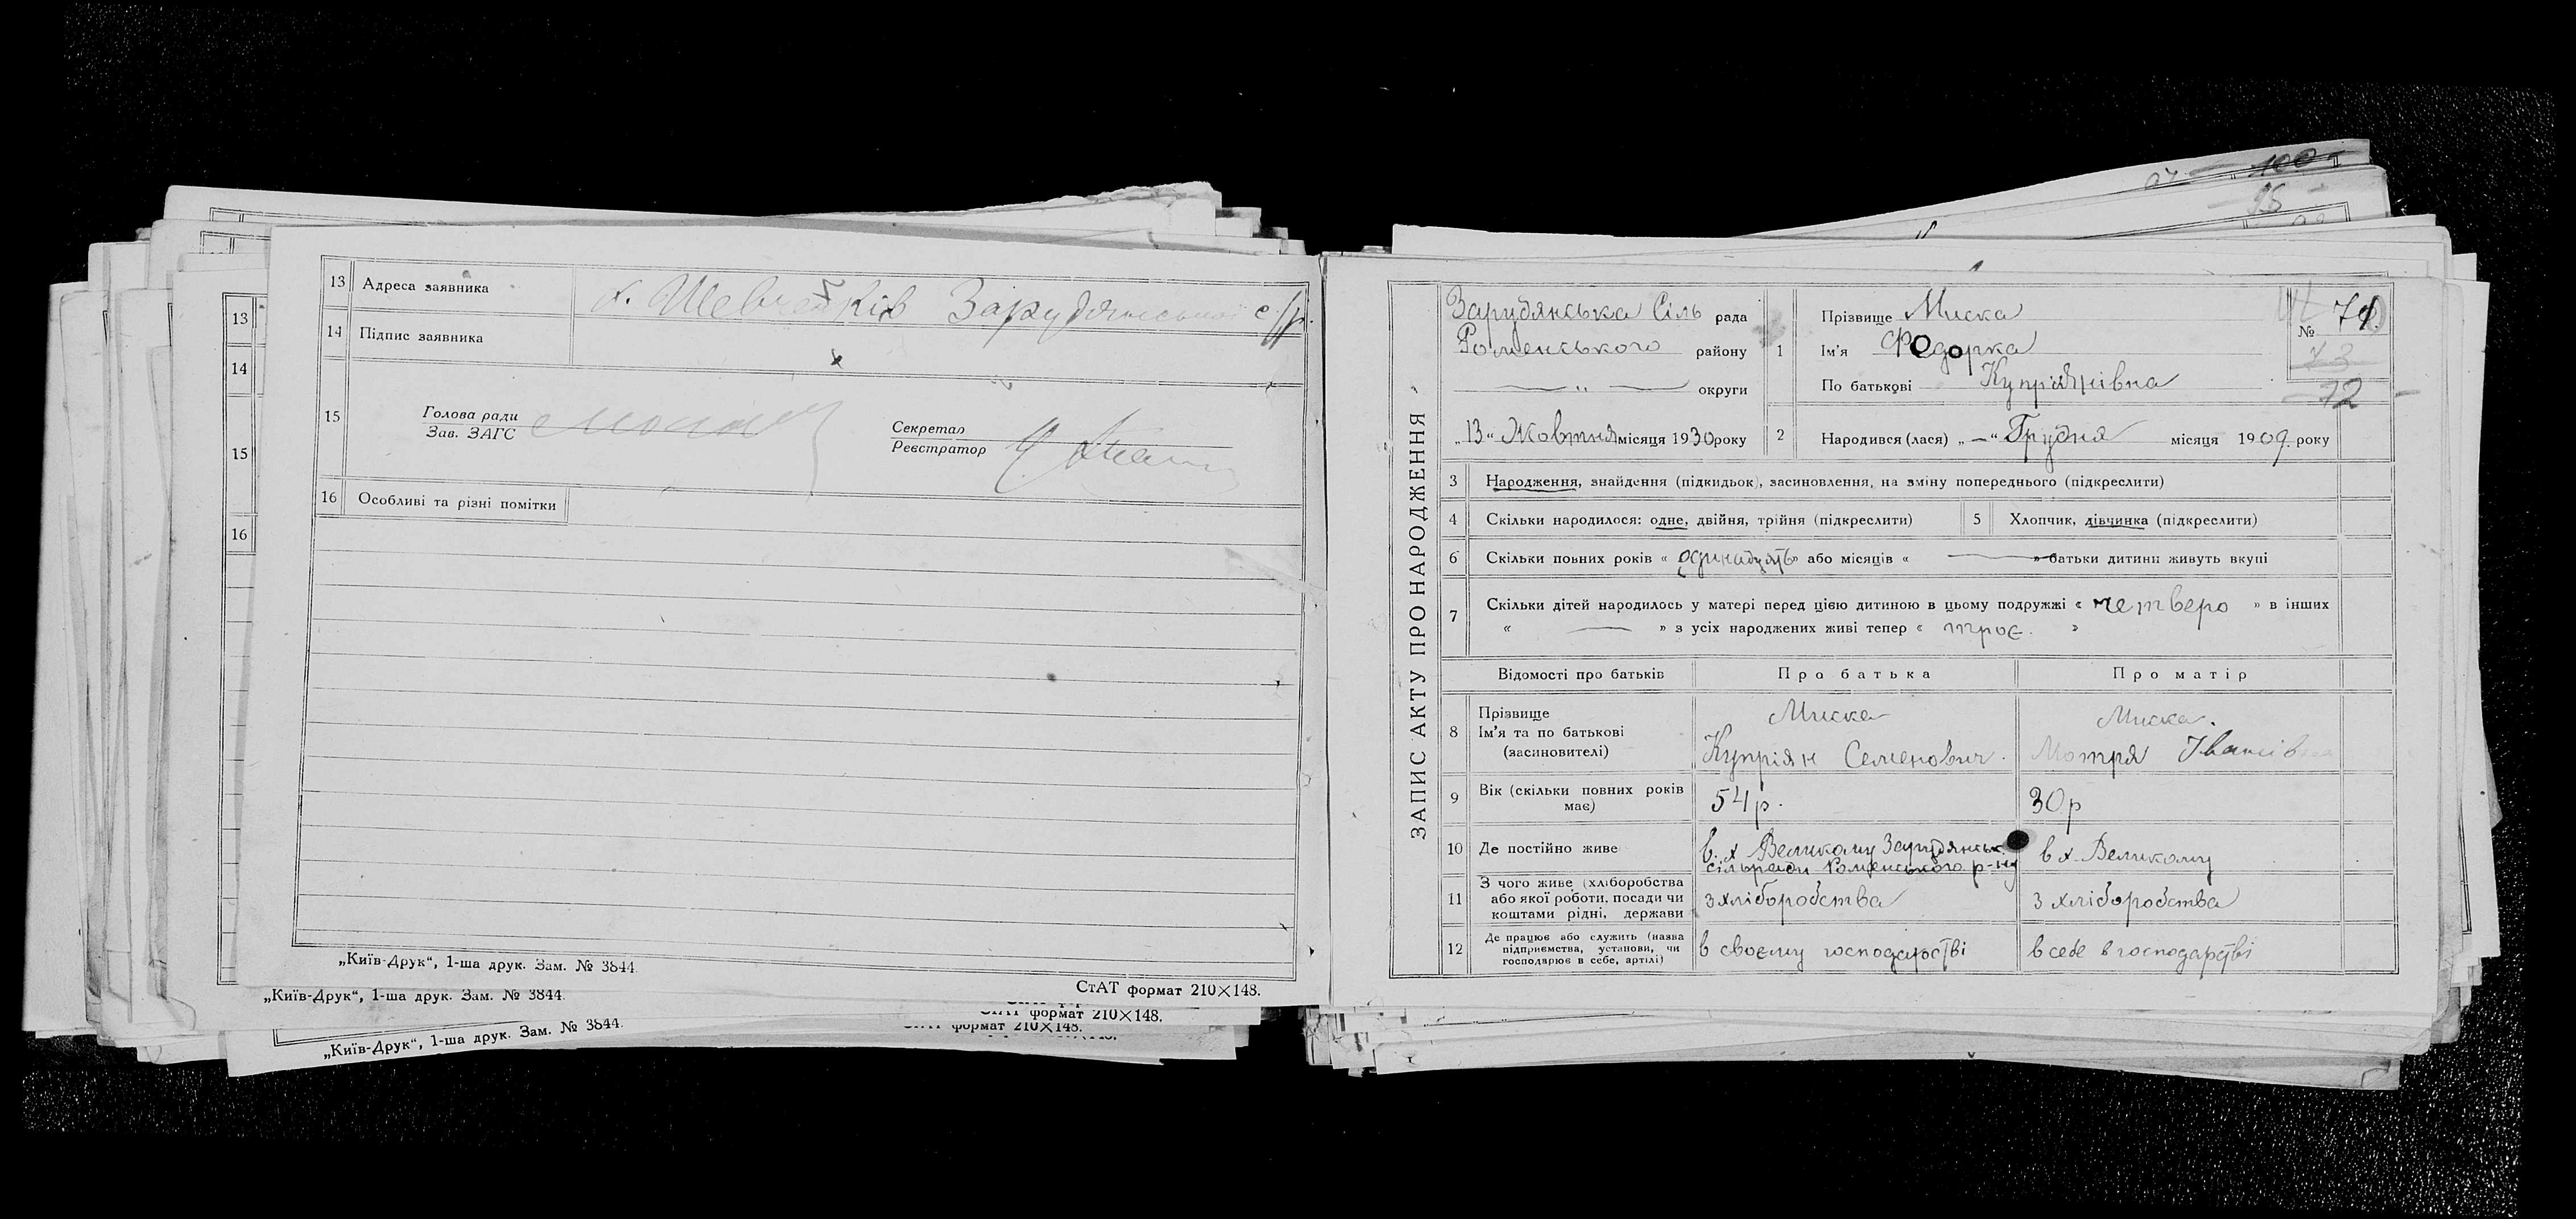 13 Адреса заявника х. Шевченків Зарудянської с/р.
14 Підпис заявника
15 Голова ради
Зав. ЗАГС
Секретар
Реєстратор
16 Особливі та різні помітки
„Київ-Друк“, 1-ша друк. Зам. № 3844.
СтАТ формат 210×148.
13
14
15
16
„Київ-Друк“, 1-ша друк. Зам. № 3844.
формат 210×148.
„Київ-Друк“, 1-ша друк. Зам. № 3844.
формат 210×148.
100
95
ЗАПИС АКТУ ПРО НАРОДЖЕННЯ
Зарудянська Сіль рада
Роменського району
— „ — округи
„13“ Жовтня місяця 1930 року
1 Прізвище Миска
Ім'я Федорка
По батькові Купріянівна
№ 71.
73
72
2 Народився (лася) „—“ Грудня місяця 1909. року
3 Народження, знайдення (підкидьок), засиновлення, на зміну попереднього (підкреслити)
4 Скільки народилося: одне, двійня, трійня (підкреслити) 5 Хлопчик, дівчинка (підкреслити)
6 Скільки повних років « одинадцять » або місяців « — » батьки дитини живуть вкупі
7 Скільки дітей народилось у матері перед цією дитиною в цьому подружжі « четверо » в інших
« — » з усіх народжених живі тепер « троє. »
Відомості про батьків Про батька Про матір
8 Прізвище
Ім'я та по батькові
(засиновителі)
Миска
Купріян Семенович.
Миска.
Мотря Іванівна
9 Вік (скільки повних років
має)
54 р.
30 р
10 Де постійно живе
в. х Великому Зарудянськ.
сільради Роменського р-ну
в х. Великому
11 З чого живе (хліборобства
або якої роботи, посади чи
коштами рідні, держави
з хліборобства
з хліборобства
12 Де працює або служить (назва
підприємства, установи, чи
господарює в себе, артілі)
в своєму господарстві
в себе в господарстві